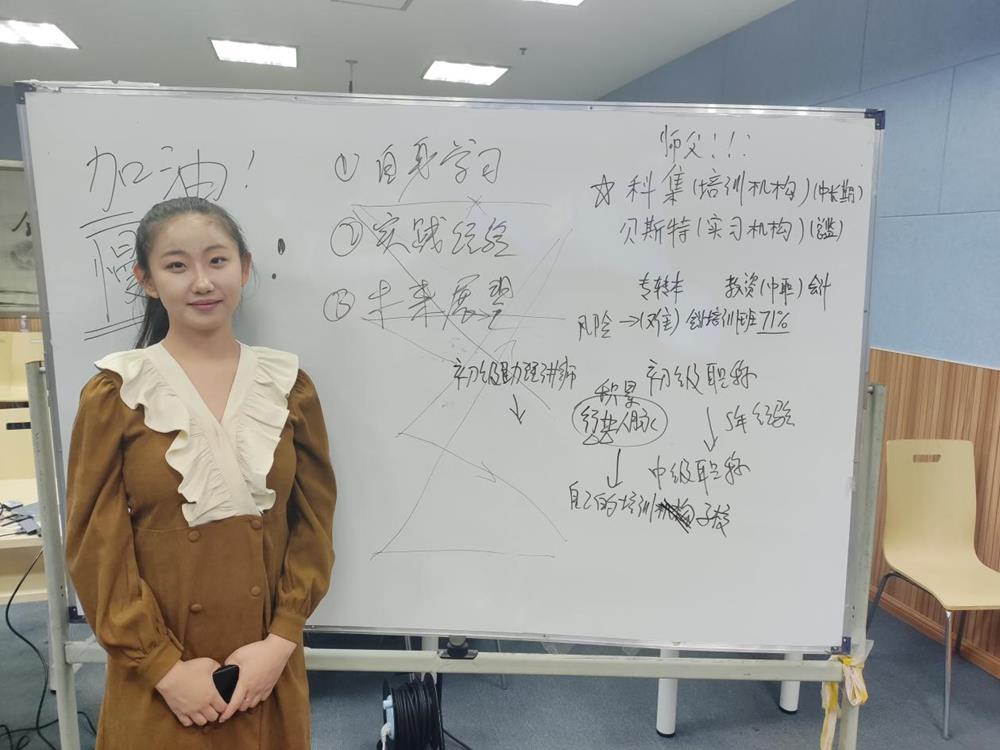 加油！
慢
① 自身学习
② 实践经验
③ 未来展望
师父！！！
☆ 科集（培训机构）（中长期）
贝斯特（实习机构）
专转本 教资（中职）会计
风险 →（难）会计培训班71%
初级助理讲师 ↓
积累
人脉
↓
自己的培训
初级职称
↓ 5年经验
中级职称